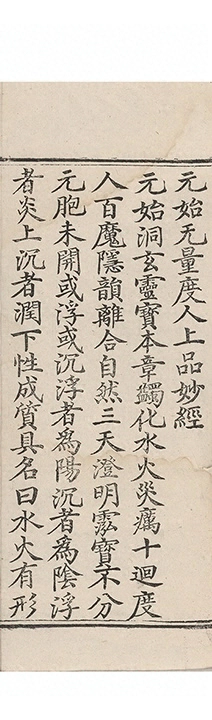 元始无量度人上品妙經
元始洞玄靈寶本章蠲化水火災癘十迴度
人百魔隱韻離合自然三天澄明靈寶不分
元胞未開或浮或沉浮者為陽沉者為陰浮
者炎上沉者潤下性成質具名曰水火有形